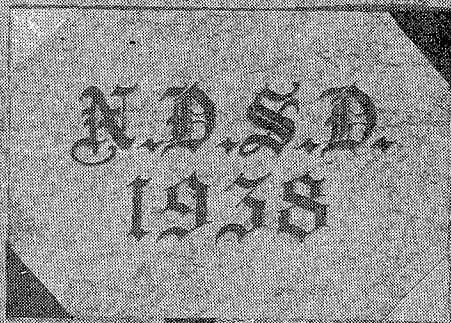 N.D.S.D.
1938